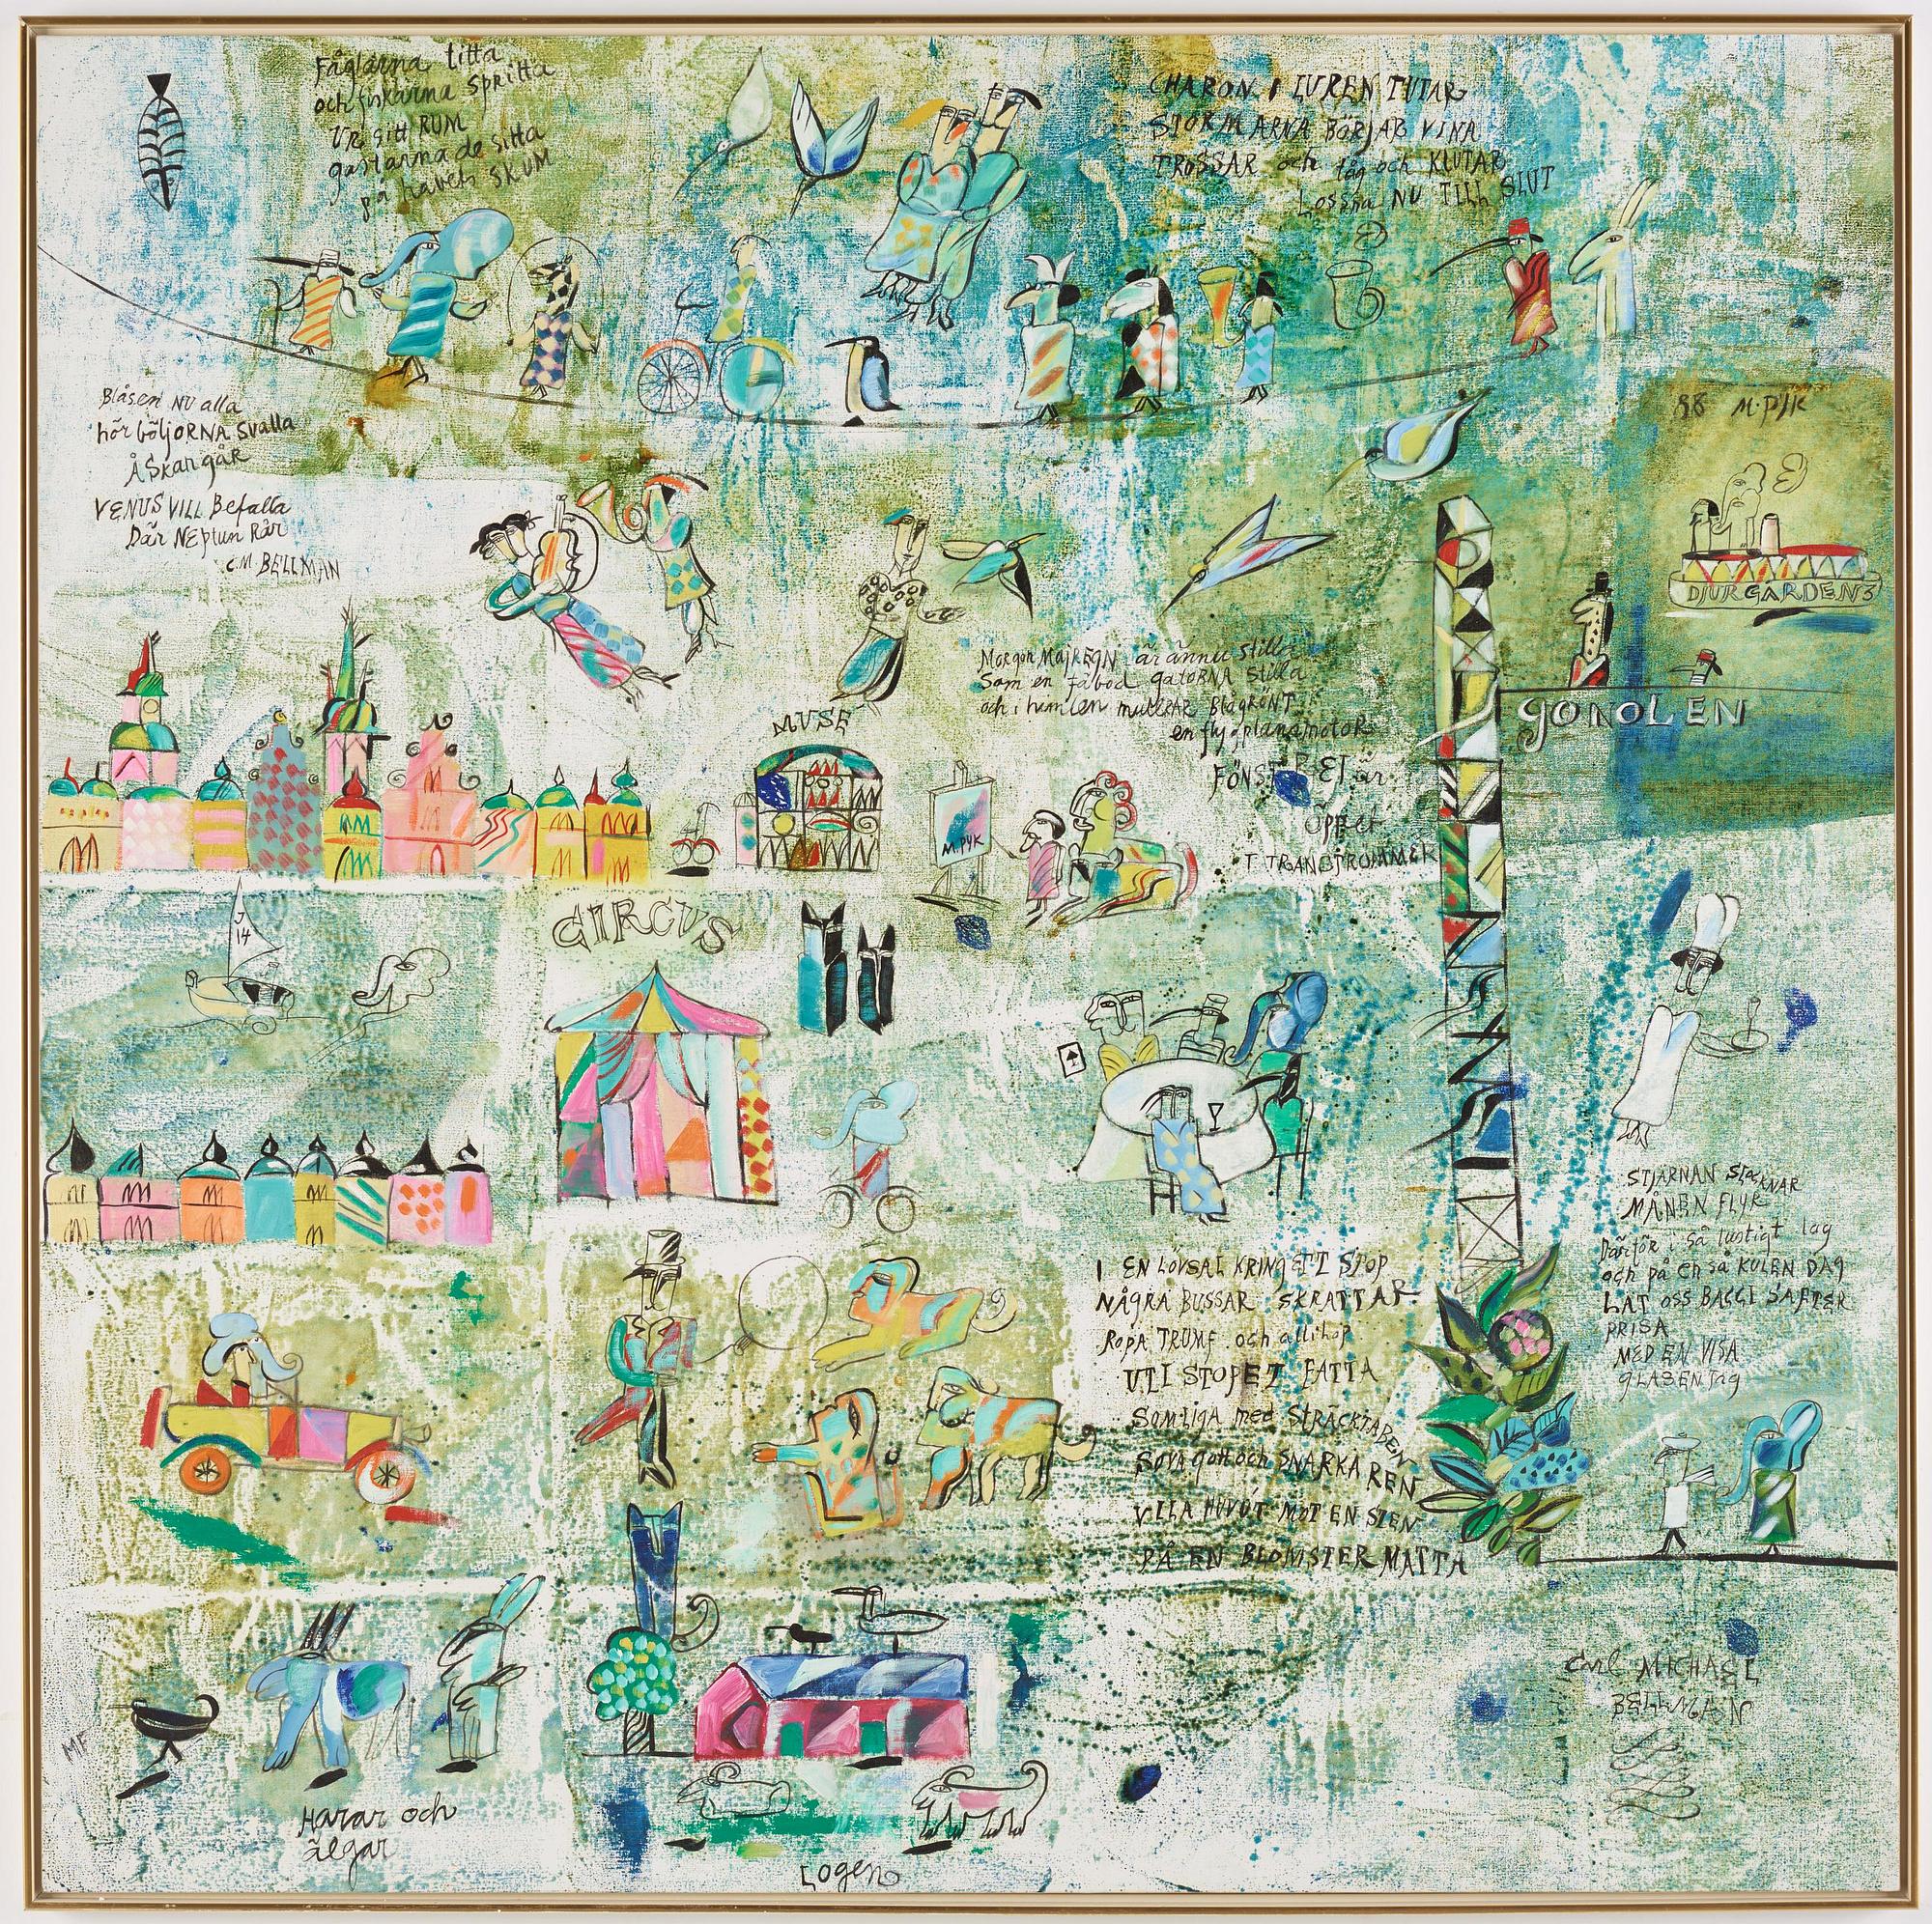 Fåglarna titta
och fiskarna spritta
UR sitt RUM
gastarna de sitta
på havets SKUM
CHARON I LUREN TUTAR
STORMARNA BÖRJAR VINA
TROSSAR och tåg och KLUTAR
Lossna NU TILL SLUT
Blåsen NU alla
hör böljORNA Svalla
ÅSkan går
VENUS VILL Befalla
Där NEptun Rår
C.M BELLMAN
88 M.PYK
DJURGÅRDEN 3
GONDLEN
Morgon MajREGN är ännu stilla
Som en fäbod gatorna stilla
och i himlen mullrar Blågrönt
en flygplansmotor
FÖNSTRET är
öppet
T TRANSTRÖMMER
MUSE
M.PYK
CIRCUS
J
14
STJÄRNAN SlocKNAR
MÅNEN FLYR
Därför i så lustigt lag
och på en så KULEN DAG
LÅT OSS BACCI SAFTER
PRISA
MED EN VISA
GLASEN tag
I EN LÖVSAL KRING ETT STOP
NÅGRA BUSSAR SKRATTAR
Ropa TRUMF och allihop
UTI STOPET FATTA
SOMLIGA med STRÄCKTA BEN
Sova gott och SNARKA REN
VILA HUVUT MOT EN STEN
PÅ EN BLOMSTER MATTA
Carl MICHAEL
BELLMAN
Harar och
älgar
Logen